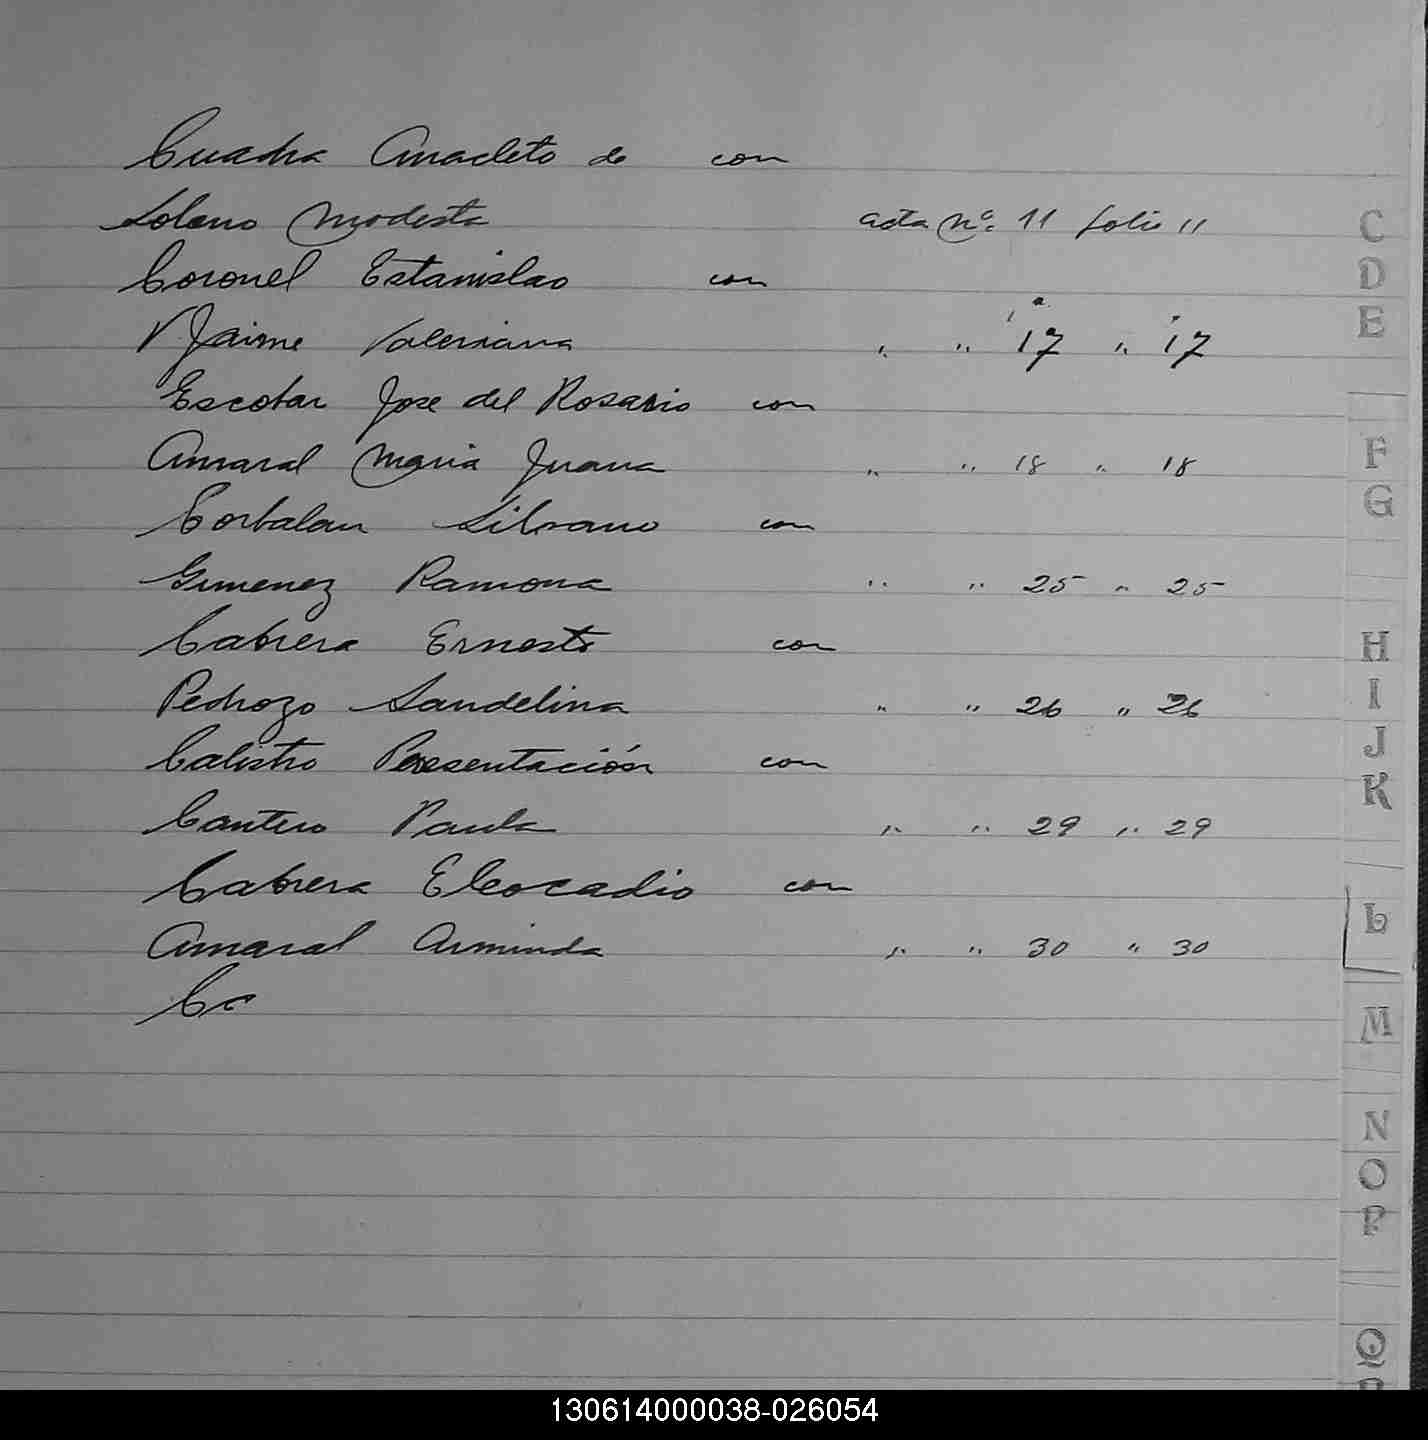 Cuadra Anacleto de con
Solano Modesta acta Nº. 11 folio 11
Coronel Estanislao con
Jaime Valeriana " " 17 " 17
Escobar Jose del Rosario con
Amaral Maria Juana " " 18 " 18
Corbalan Silvano con
Gimenez Ramona " " 25 " 25
Cabrera Ernesto con
Pedrozo Sandelina " " 26 " 26
Calistro Presentación con
Cantero Paula " " 29 " 29
Cabrera Eleocadio con
Amaral Arminda " " 30 " 30
Cc
C
D
E
F
G
H
I
J
K
L
M
N
O
P
Q
130614000038-026054